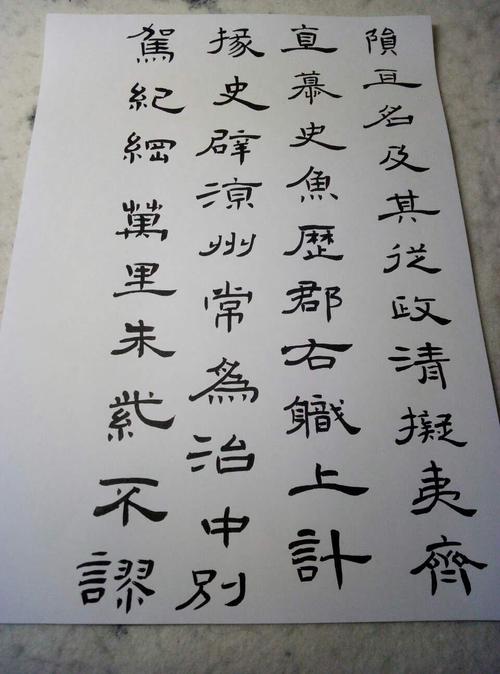 隕亘名及其從政清擬夷齊
直慕史魚歷郡右職上計
掾史辟涼州常為治中別
駕紀綱萬里朱紫不謬